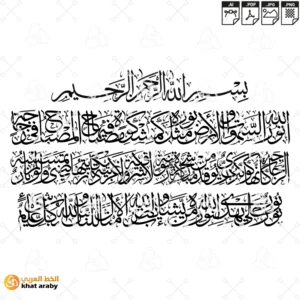 AI PDF JPG PNG
بسم الله الرحمن الرحيم
الله نور السموات والأرض مثل نوره كمشكاة فيها مصباح المصباح في زجاجة
الزجاجة كأنها كوكب دري يوقد من شجرة مباركة زيتونة لا شرقية ولا غربية يكاد زيتها يضيء ولو لم تمسسه نار
نور على نور يهدي الله لنوره من يشاء ويضرب الله الأمثال للناس والله بكل شيء عليم
الخط العربي
khat araby